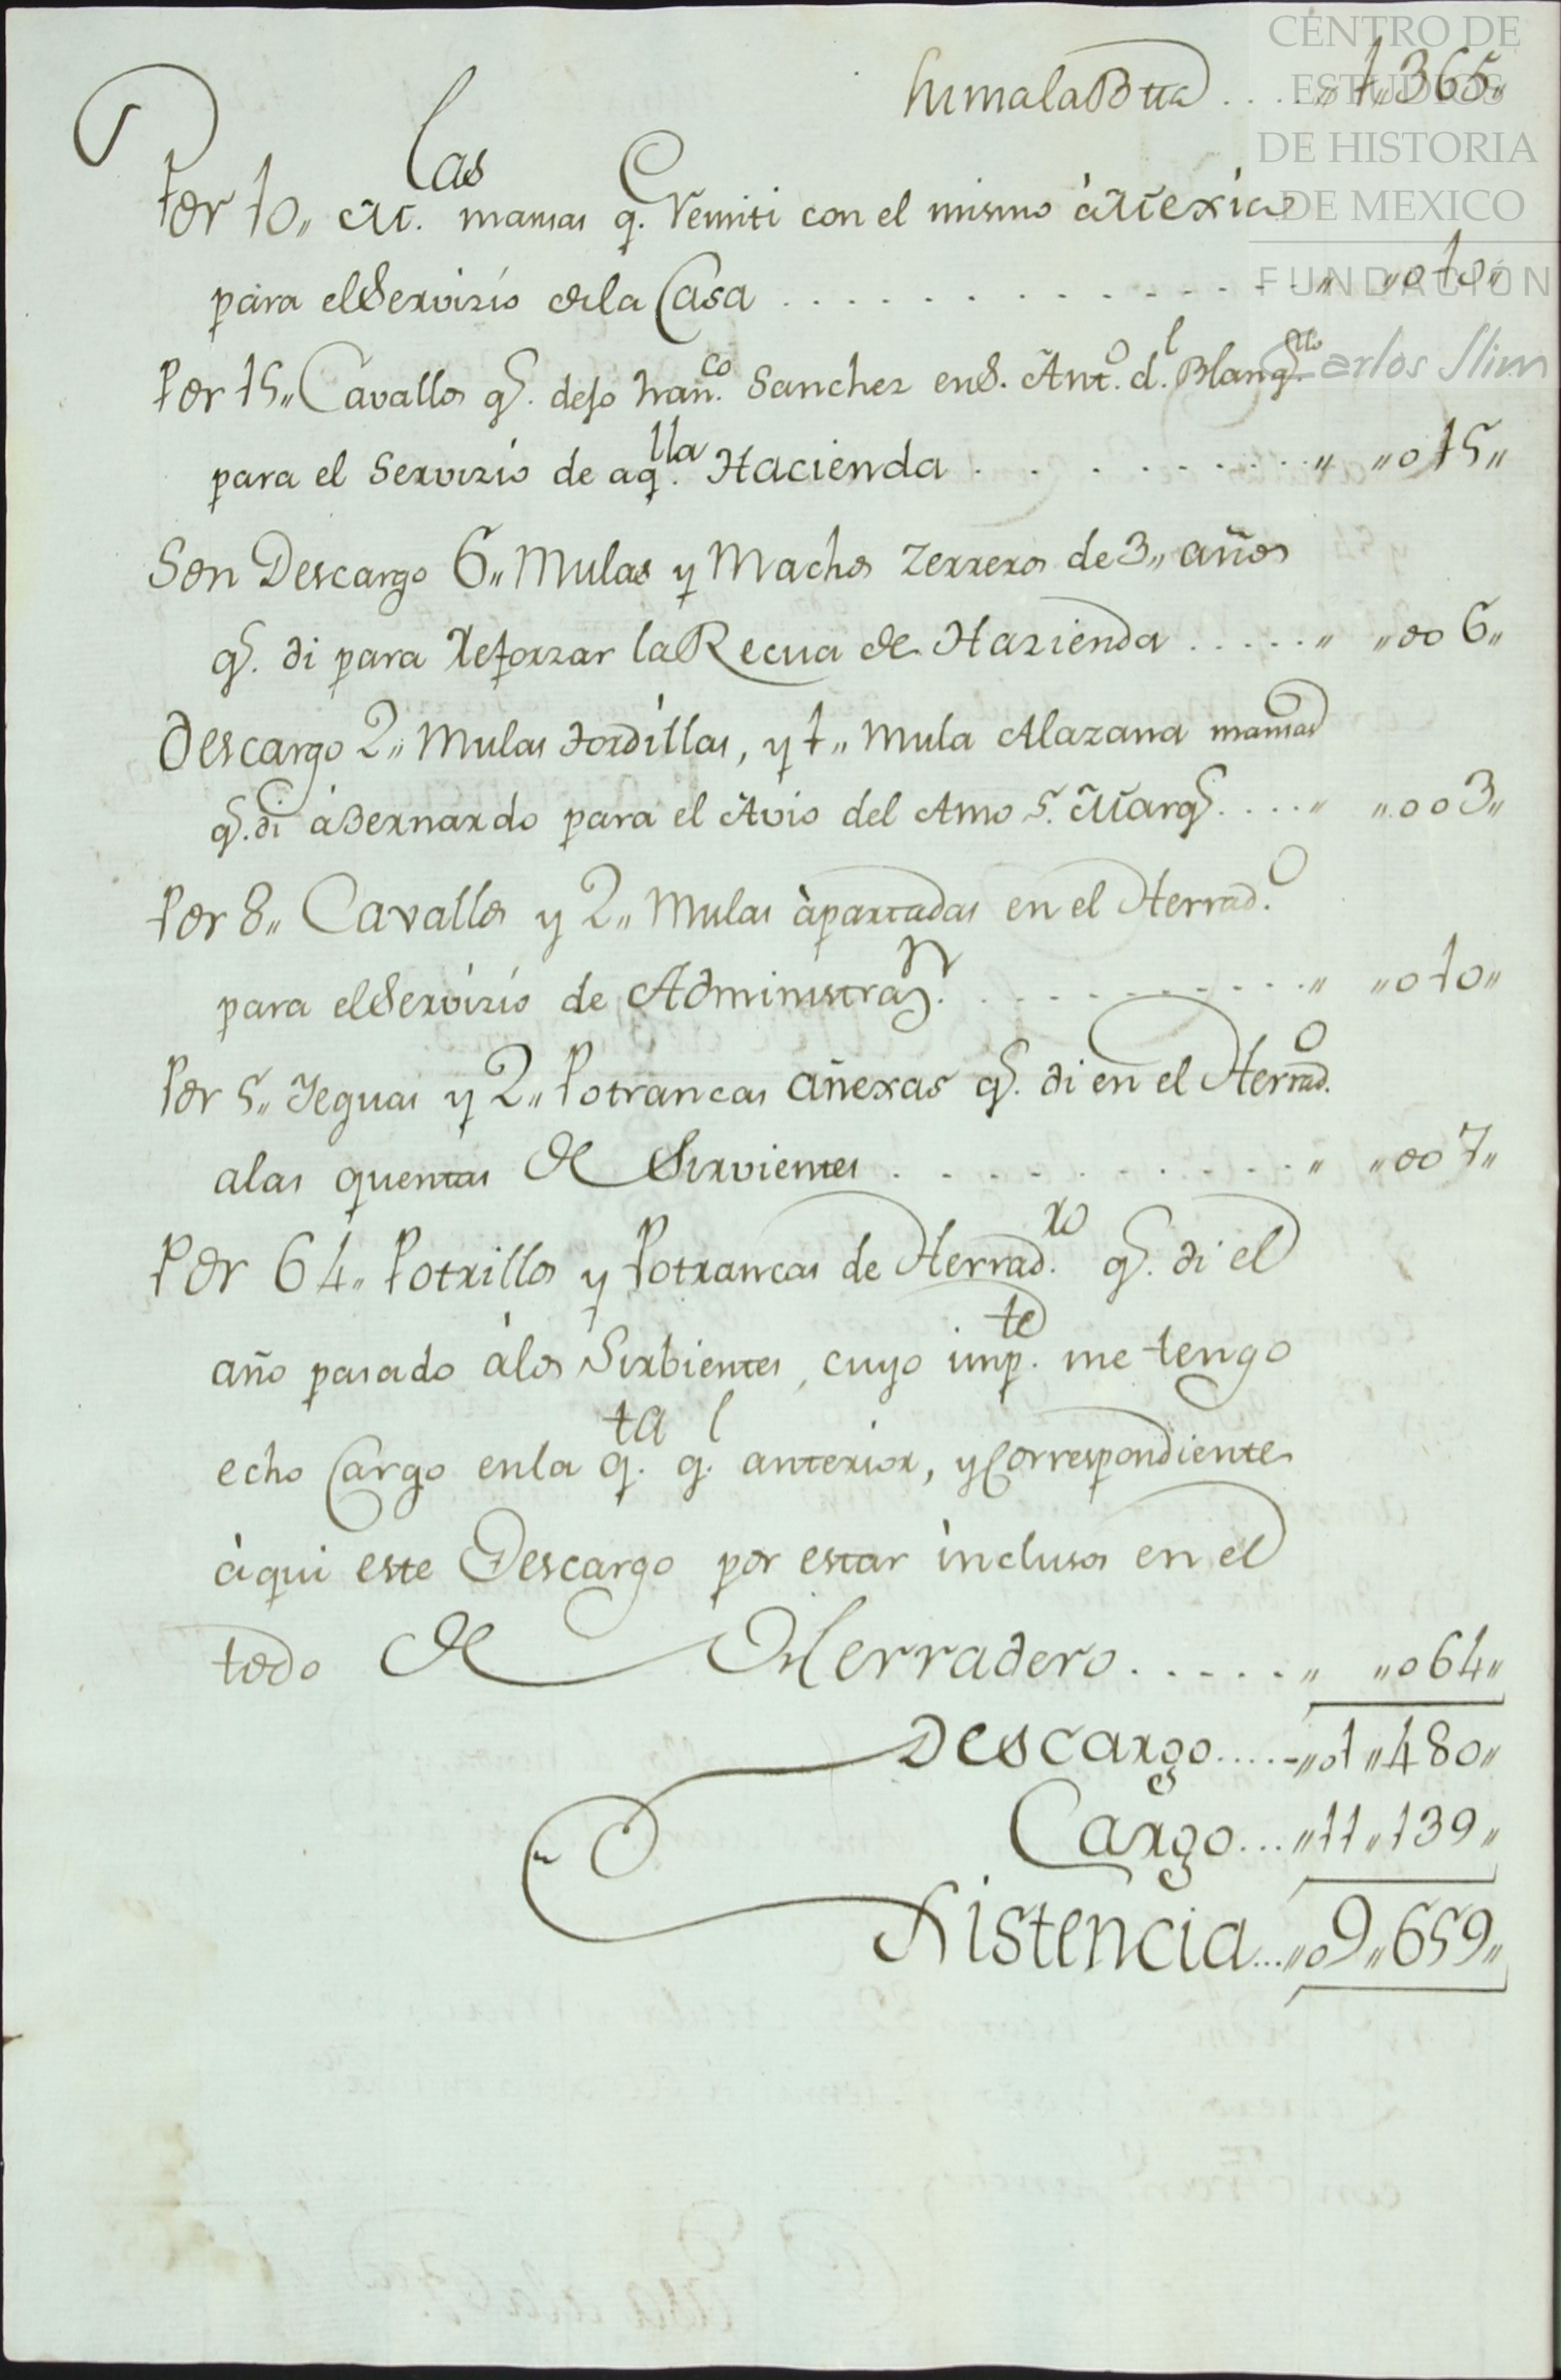 Suma la Bta ..... „ 1„365„
Por 10„ M.las mansas q.e remiti con el mismo à Mexico
para el Servizio de la Casa ............ „ „010„
Por 15„ Cavallos q.e dejo Fran.co Sanchez en S. Ant.o d.l Blanq.llo
para el Servizio de aq.lla Hacienda ......... „ „015„
Son Descargo 6„ Mulas y Machos zerreros de 3„ años
q.e di para Reforzar la Recua de Hazienda ..... „ „006„
Descargo 2„ Mulas tordillas, y 1„ Mula Alazana mansas
q.e di à Bernardo para el Avio del Amo S. Marq.s .... „ „003„
Por 8„ Cavallos y 2„ Mulas àpartadas en el Herrad.o
para el Servizio de Administraz.n .......... „ „010„
Por 5„ Yeguas y 2„ Potrancas añexas q.e di en el Herrad.o
alas quentas de Sirvientes .......... „ „007„
Por 64„ Potrillos y Potrancas de Herrad.ro q.e di el
año pasado à los Sirbientes, cuyo imp.te me tengo
echo Cargo en la q.ta g.l anterior, y Correspondiente
àqui este Descargo por estar inclusos en el
todo de Herradero ..... „ „064„
Descargo .....„01„480„
Cargo ...„11„139„
Xistencia ...„09„659„
CENTRO DE
ESTUDIOS
DE HISTORIA
DE MEXICO
FUNDACIÓN
Carlos Slim